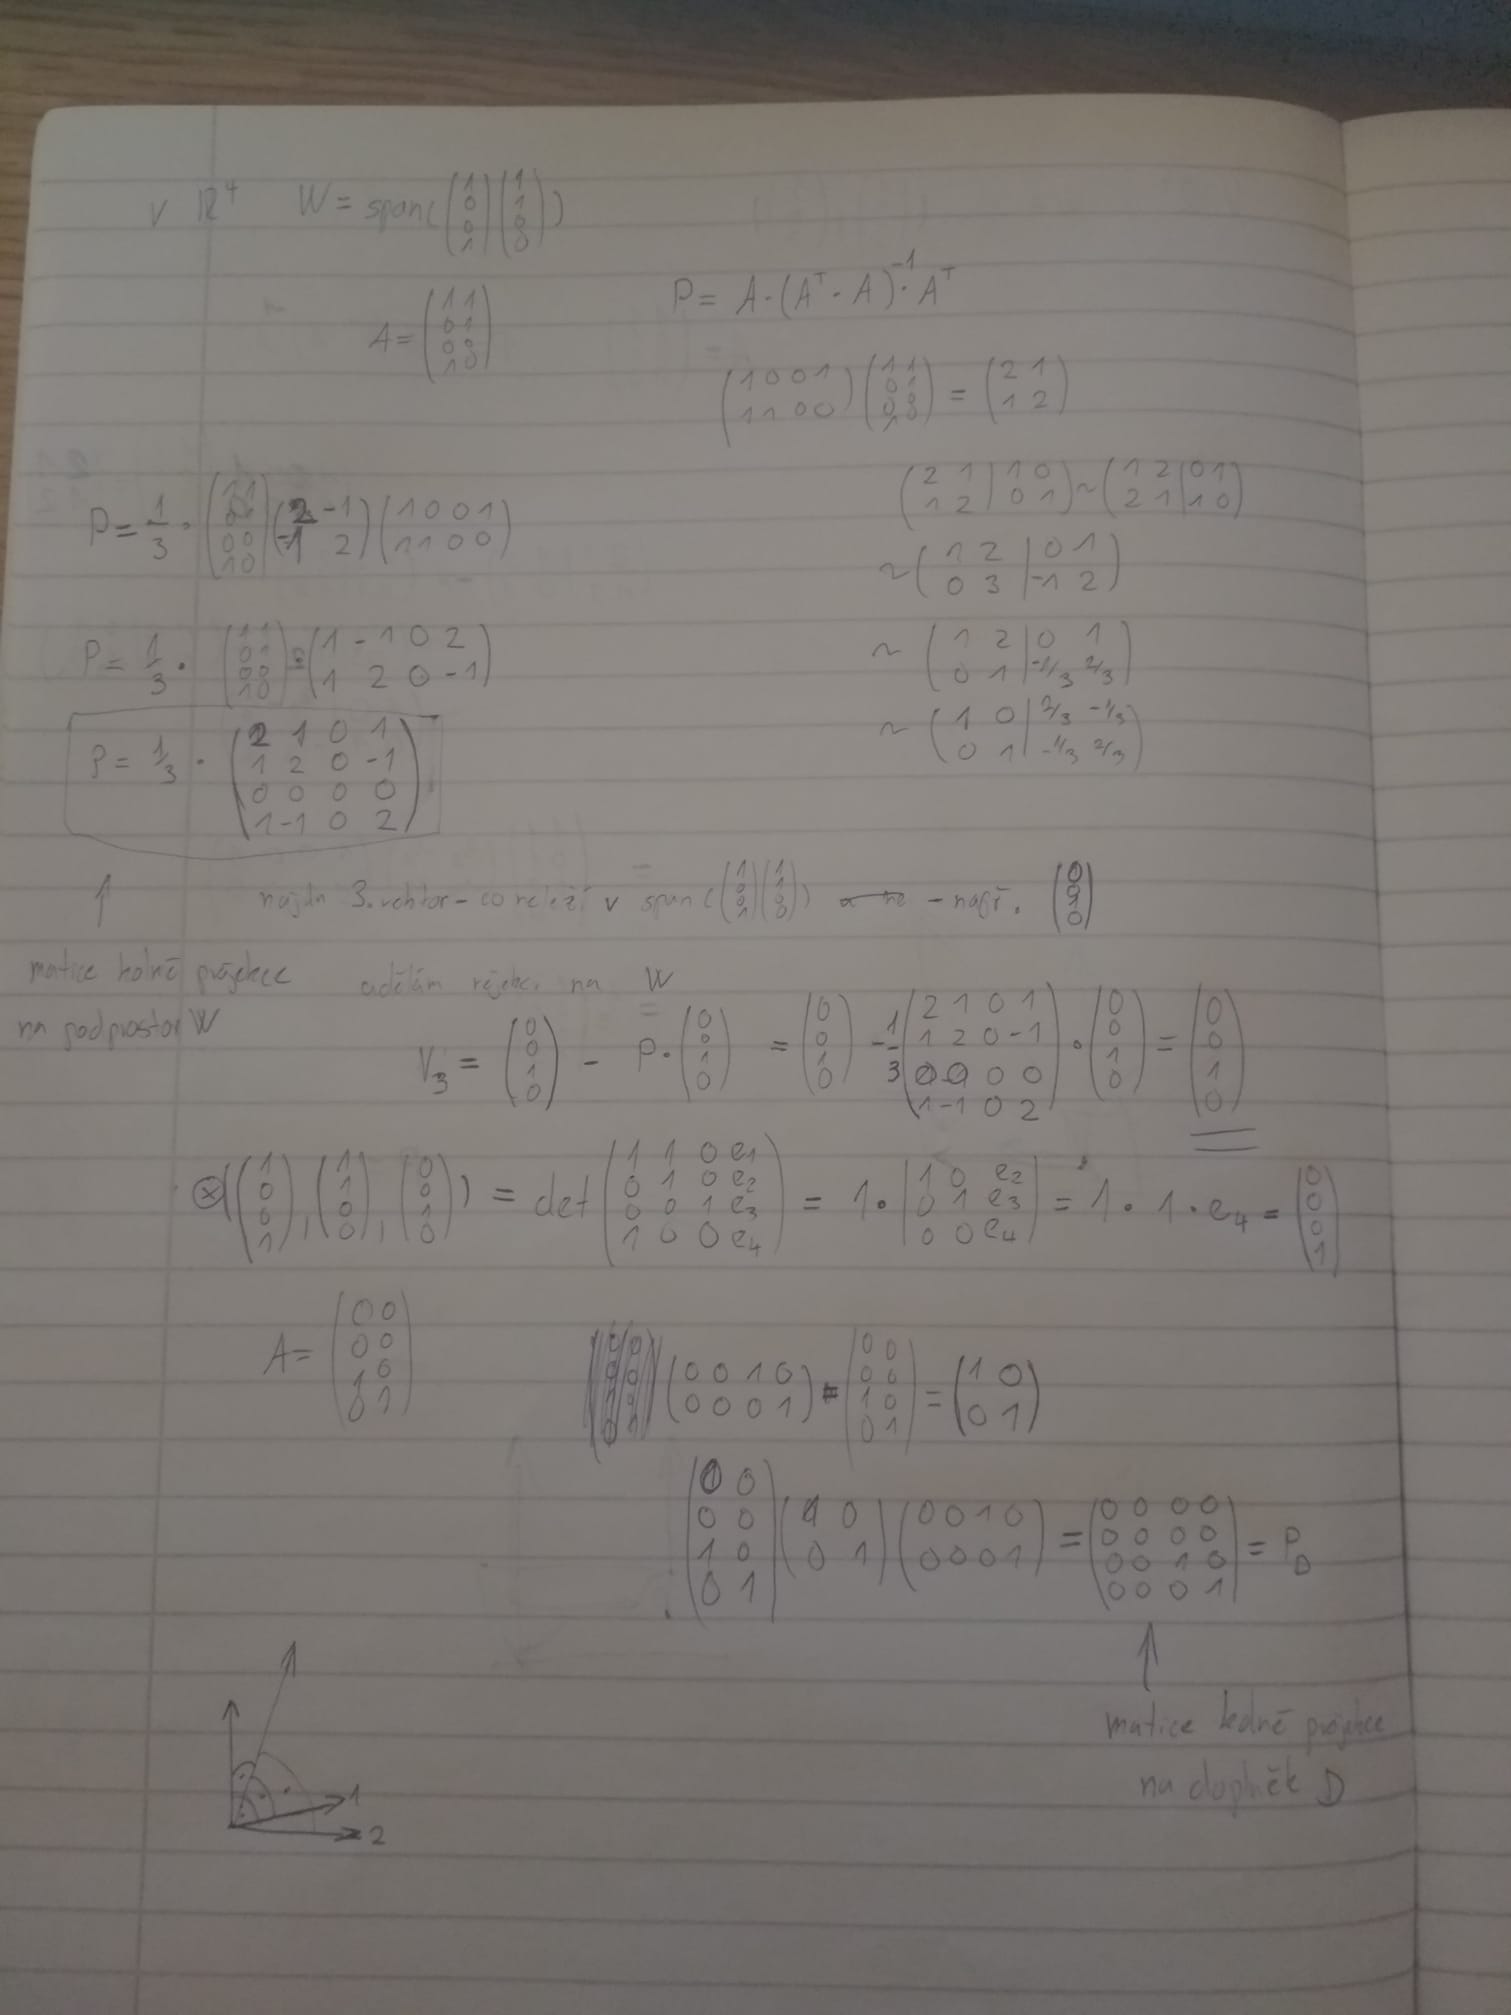 v ℝ⁴ W = span( (1 0 0 1) (1 1 0 0) )
A = (1 1; 0 1; 0 0; 1 0)
P = A · (Aᵀ · A)⁻¹ · Aᵀ
(1 0 0 1; 1 1 0 0) (1 1; 0 1; 0 0; 1 0) = (2 1; 1 2)
(2 1 | 1 0; 1 2 | 0 1) ~ (1 2 | 0 1; 2 1 | 1 0)
~ (1 2 | 0 1; 0 3 | -1 2)
~ (1 2 | 0 1; 0 1 | -1/3 2/3)
~ (1 0 | 2/3 -1/3; 0 1 | -1/3 2/3)
P = 1/3 · (1 1; 0 1; 0 0; 1 0) (2 -1; -1 2) (1 0 0 1; 1 1 0 0)
P = 1/3 · (1 1; 0 1; 0 0; 1 0) · (1 -1 0 2; 1 2 0 -1)
P = 1/3 · (2 1 0 1; 1 2 0 -1; 0 0 0 0; 1 -1 0 2)
↑
matice kolmé projekce
na podprostor W
najdu 3. vektor - co neleží v span( (1 0 0 1) (1 1 0 0) ) - např. (0 0 1 0)
udělám rejekci na W
v₃ = (0 0 1 0) - P · (0 0 1 0) = (0 0 1 0) - 1/3 (2 1 0 1; 1 2 0 -1; 0 0 0 0; 1 -1 0 2) · (0 0 1 0) = (0 0 1 0)
⊗( (1 0 0 1), (1 1 0 0), (0 0 1 0) ) = det (1 1 0 e₁; 0 1 0 e₂; 0 0 1 e₃; 1 0 0 e₄) = 1 · |1 0 e₂; 0 1 e₃; 0 0 e₄| = 1 · 1 · e₄ = (0 0 0 1)
A = (0 0; 0 0; 1 0; 0 1)
(0 0 1 0; 0 0 0 1) (0 0; 0 0; 1 0; 0 1) = (1 0; 0 1)
(0 0; 0 0; 1 0; 0 1) (1 0; 0 1) (0 0 1 0; 0 0 0 1) = (0 0 0 0; 0 0 0 0; 0 0 1 0; 0 0 0 1) = P_D
↑
matice kolmé projekce
na doplněk D
1
2